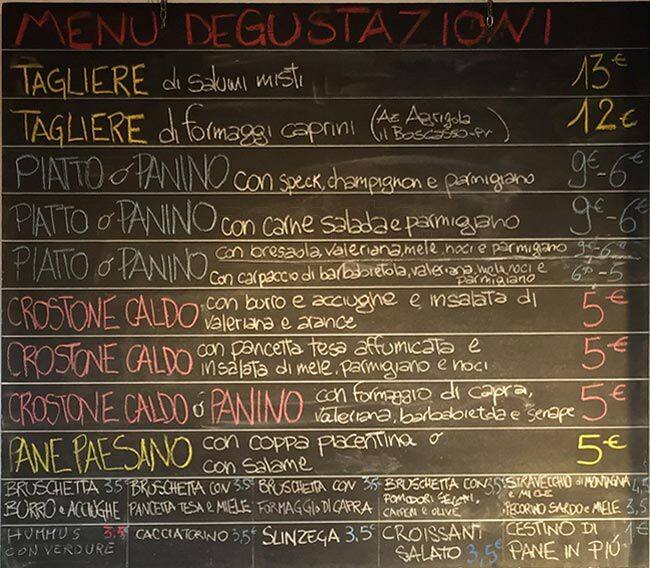 MENU' DEGUSTAZIONI
TAGLIERE di salumi misti 13€
TAGLIERE di formaggi caprini (Az Agrigola il Boscasso-Pr) 12€
PIATTO o' PANINO con speck, champignon e parmigiano 9€-6€
PIATTO o' PANINO con carne salada e parmigiano 9€-6
PIATTO o' PANINO con bresaola, valeriana, mele noci e parmigiano 9€-6
con carpaccio di barbabietola, valeriana, mela, noci e parmigiano -5
CROSTONE CALDO con burro e acciughe e insalata di 5€
valeriana e arance
CROSTONE CALDO con pancetta tesa affumicata e 5€
insalata di mele, parmigiano e noci
CROSTONE CALDO ó PANINO con formaggio di capra, 5€
valeriana, barbabietola e senape
PANE PAESANO con coppa piacentina o 5€
con salame
BRUSCHETTA 3,5€
BURRO e ACCIUGHE
BRUSCHETTA CON 3,5€
PANCETTA TESA e MIELE
BRUSCHETTA CON 3,5€
FORMAGGIO DI CAPRA
BRUSCHETTA CON 3,5
POMODORI SECCHI,
CAPPERI e OLIVE
STRAVECCHIO DI MONTAGNA
e MIELE 4,5
PECORINO SARDO e MIELE 3,5
HUMMUS 3,5
CON VERDURE
CACCIATORINO 3,5€
SLINZEGA 3,5€
CROISSANT
SALATO 3,5€
CESTINO DI 1€
PANE IN PIÚ